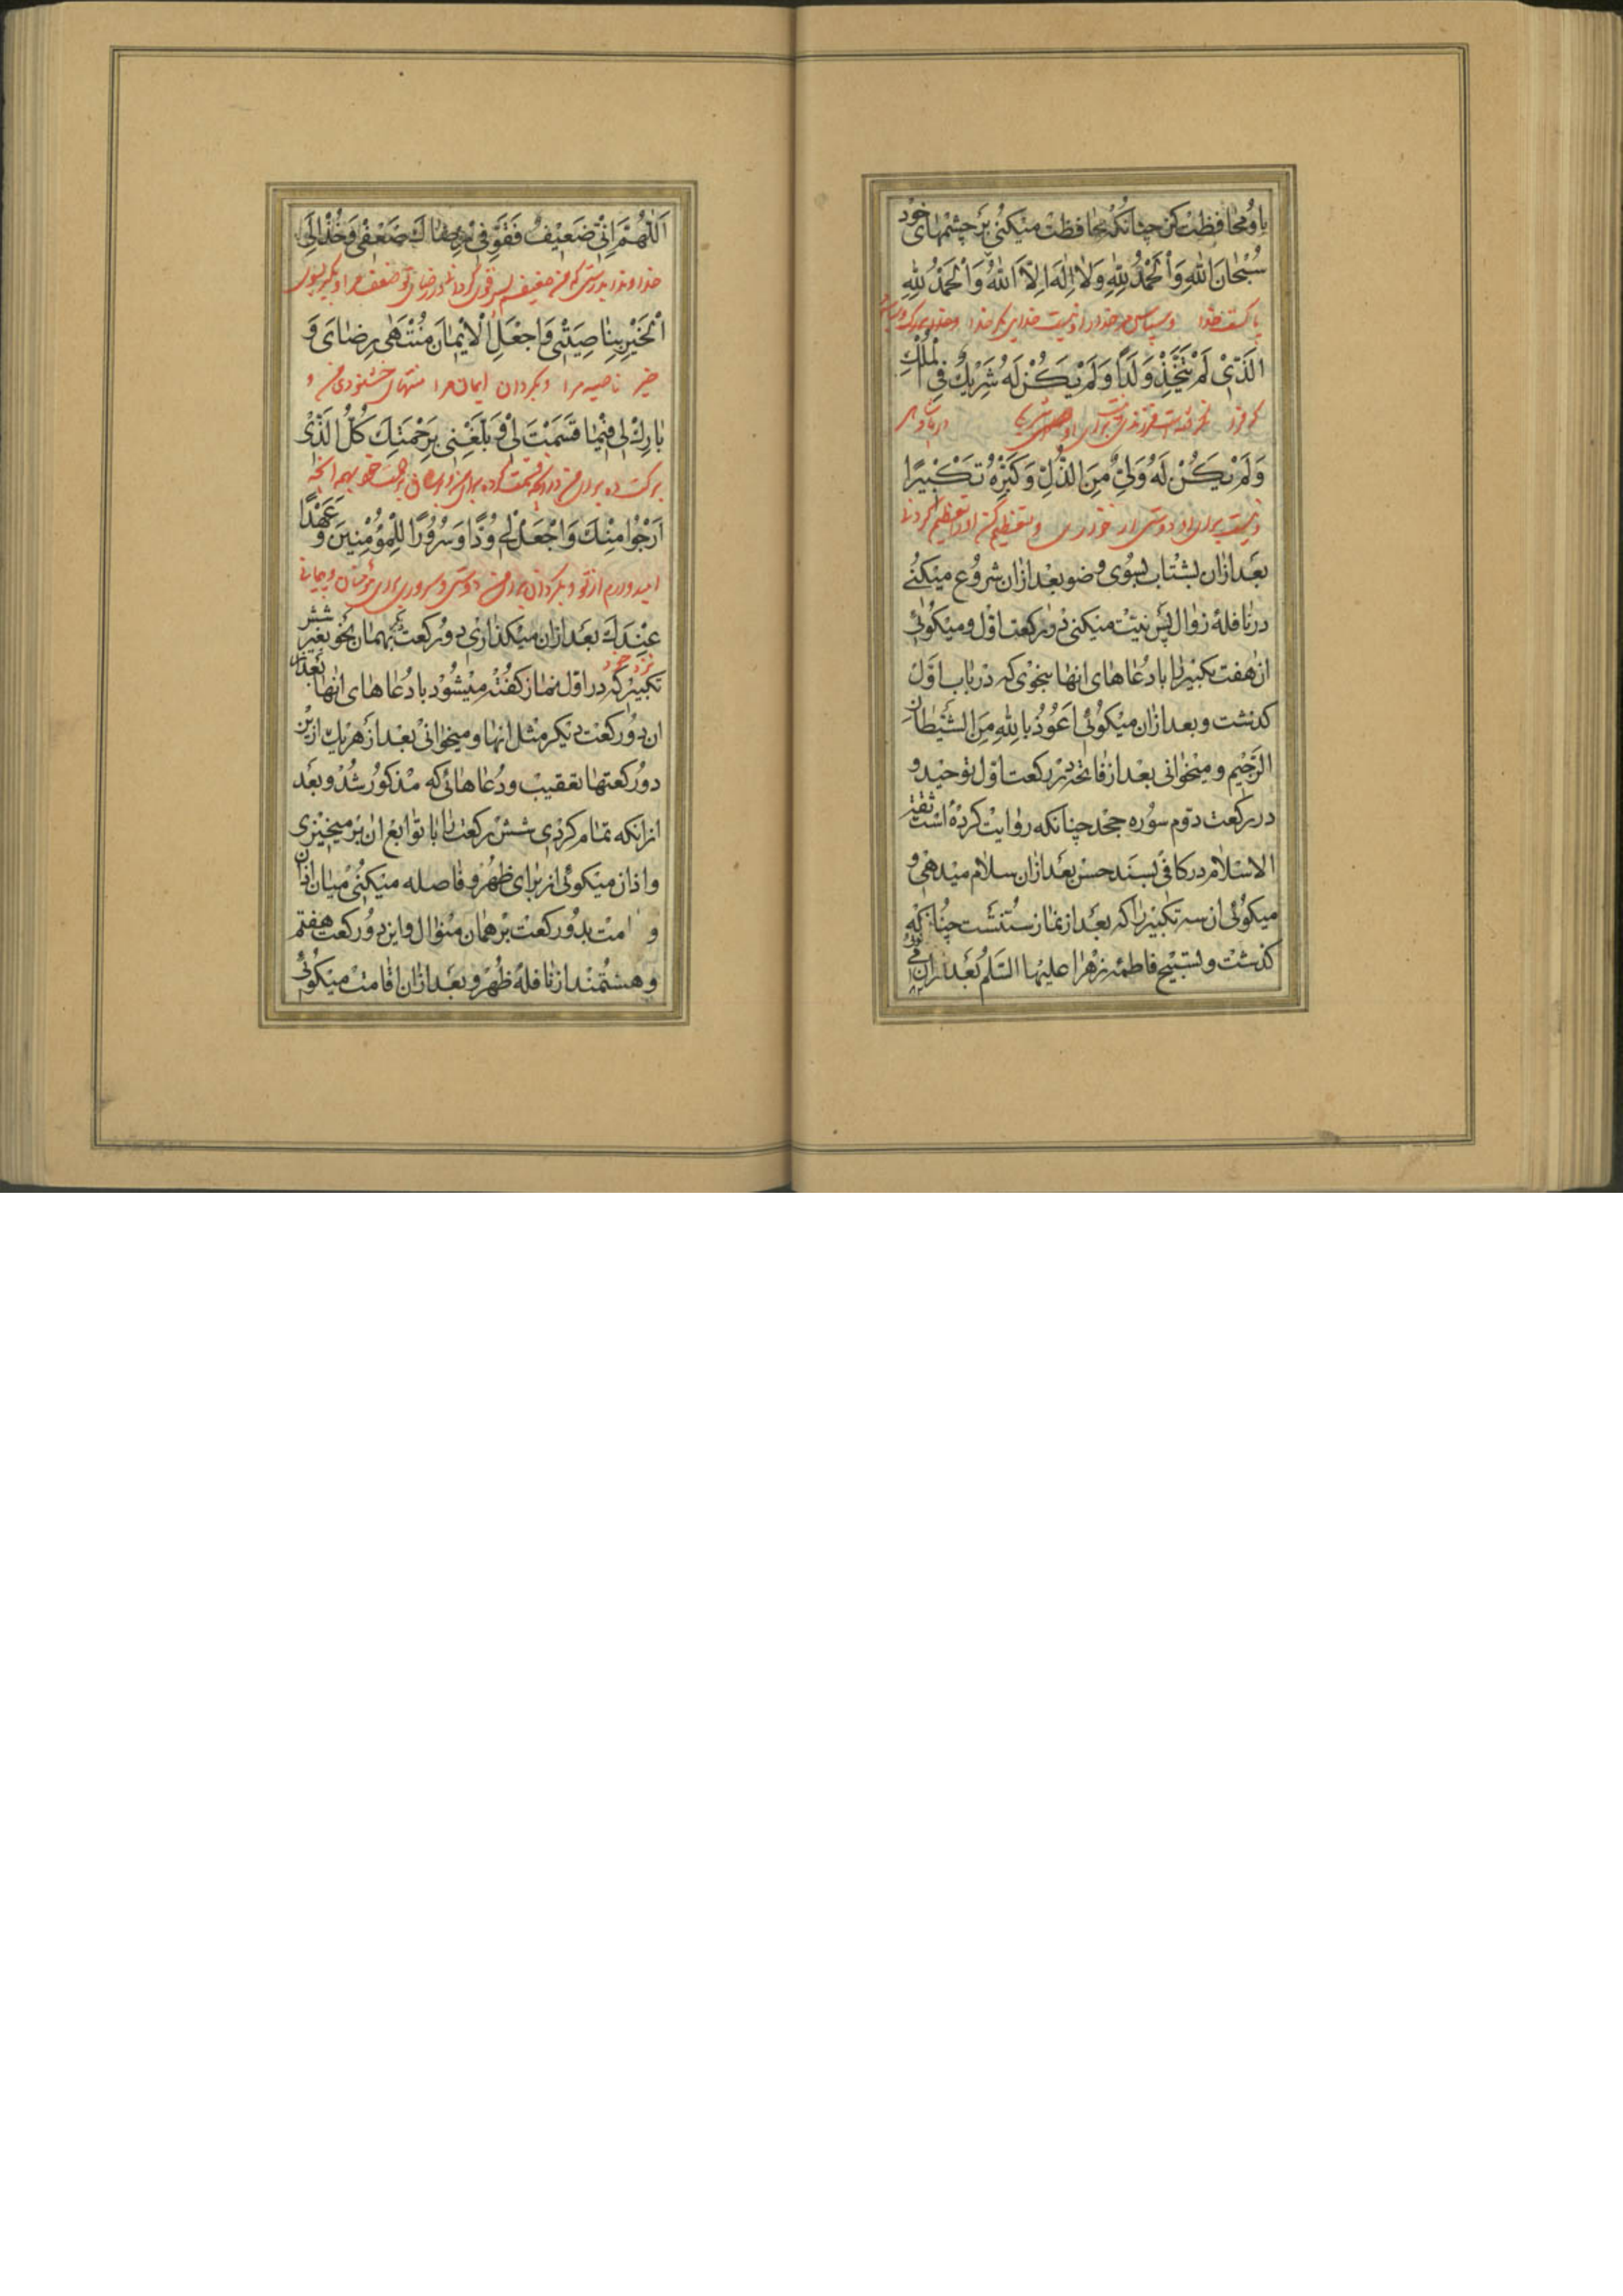 باو محافظت کن چنانکه محافظت میکنی بر چشمهای خود
سُبْحَانَ اللهِ وَالْحَمْدُ لِلّٰهِ وَلَا اِلٰهَ اِلَّا اللهُ وَالْحَمْدُ لِلّٰهِ
الَّذِی لَمْ یَتَّخِذْ وَلَدًا وَلَمْ یَکُنْ لَهُ شَرِیكٌ فِی الْمُلْكِ
وَلَمْ یَکُنْ لَهُ وَلِیٌّ مِنَ الذُّلِّ وَکَبِّرْهُ تَکْبِیرًا
و نیست برای او دوستی از خواری و تعظیم کن او را تعظیم کردنی
بعد ازان بشتاب بسوی وضو بعد ازان شروع میکنی
در نافلهٔ زوال پس نیت میکنی در رکعت اول و میکوئی
ان هفت تکبیر را با دعاهای انها بنحوی که در باب اول
کذشت و بعد ازان میکوئی اَعُوذُ بِاللهِ مِنَ الشَّیْطَانِ
الرَّجِیمِ و میخوانی بعد از فاتحه در رکعت اول توحید و
در رکعت دوم سوره جحد چنانکه روایت کرده است ثقة
الاسلام در کافی بسند حسن بعد ازان سلام میدهی و
میکوئی ان سه تکبیر را که بعد از نماز سنتست چنانکه
کذشت و تسبیح فاطمه زهرا علیها السلم بعد ازان
اَللّٰهُمَّ اِنِّی ضَعِیفٌ فَقَوِّ فِی رِضَاكَ ضَعْفِی وَخُذْ اِلَی
خداوندا بدرستی که من ضعیفم پس قوی کردان در رضای تو ضعف مرا و بکیر بسوی
الْخَیْرِ بِنَاصِیَتِی وَاجْعَلِ الْاِیمَانَ مُنْتَهٰی رِضَایَ وَ
خیر ناصیه مرا و بکردان ایمان را منتهای خشنودی من و
بَارِكْ لِی فِیمَا قَسَمْتَ لِی وَ بَلِّغْنِی بِرَحْمَتِكَ کُلَّ الَّذِی
اَرْجُوا مِنْكَ وَاجْعَلْ لِی وُدًّا وَسُرُورًا لِلْمُؤْمِنِینَ وَ عَهْدًا
امید دارم از تو و بکردان برای من دوستی و سروری برای مؤمنان و پیمانی
عِنْدَكَ بعد ازان میکذاری دو رکعت دیگر بهمان نحو بغیر شش
نزد خود
تکبیر که در اول نماز کفته میشود با دعاهای انها بعد از
ان دو رکعت دیکر مثل انها و میخوانی بعد از هر یك ازین
دو رکعتها تعقیب و دعاهائی که مذکور شد و بعد
ازانکه تمام کردی شش رکعت را با توابع ان بر میخیزی
و اذان میکوئی از برای ظهر و فاصله میکنی میان اذان
و امت بدو رکعت بر همان منوال و این دو رکعت هفتم
و هشتمند از نافلهٔ ظهر و بعد ازان اقامت میکوئی